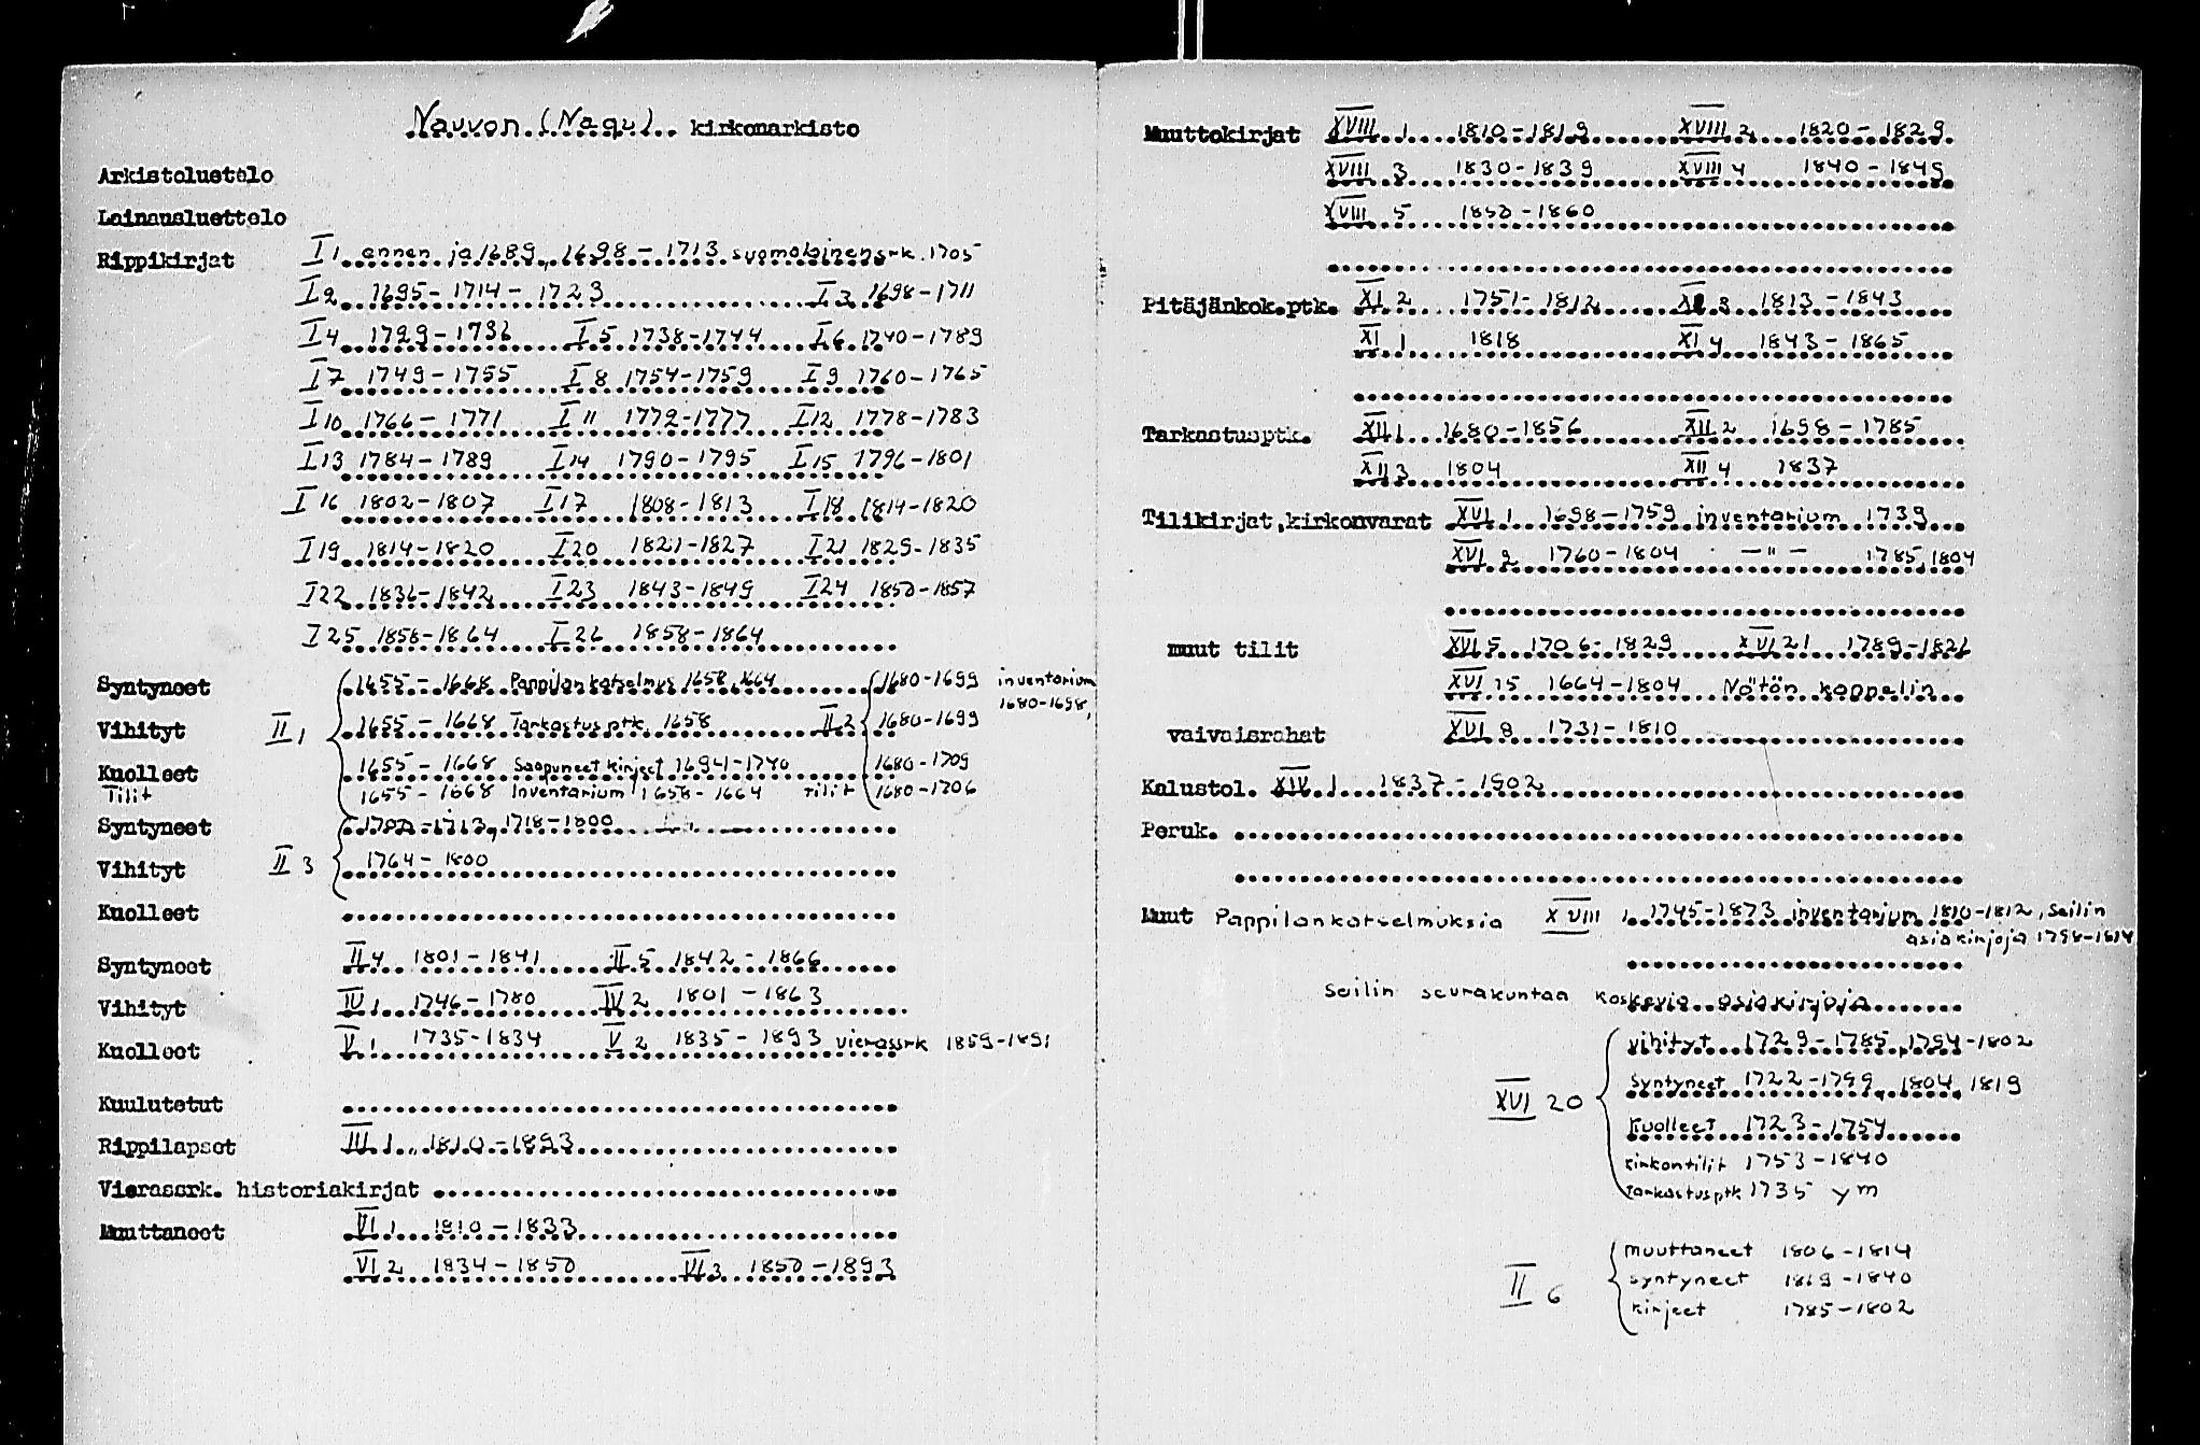 Nauvon (Nagu) kirkonarkisto
Arkistoluetelo
Lainausluettelo
Rippikirjat I 1 ennen ja 1689, 1698 - 1713 suomalainen srk. 1705
I 2 1695 - 1714 - 1723 I 3 1698 - 1711
I 4 1729 - 1736 I 5 1738 - 1744 I 6 1740 - 1789
I 7 1749 - 1755 I 8 1754 - 1759 I 9 1760 - 1765
I 10 1766 - 1771 I 11 1772 - 1777 I 12 1778 - 1783
I 13 1784 - 1789 I 14 1790 - 1795 I 15 1796 - 1801
I 16 1802 - 1807 I 17 1808 - 1813 I 18 1814 - 1820
I 19 1814 - 1820 I 20 1821 - 1827 I 21 1829 - 1835
I 22 1836 - 1842 I 23 1843 - 1849 I 24 1850 - 1857
I 25 1858 - 1864 I 26 1858 - 1864
Syntyneet 1655 - 1668 Pappilan katselmus 1658, 1664 1680 - 1699 inventarium
1680 - 1698,
Vihityt II 1 1655 - 1668 Tarkastusptk. 1658 II 2 1680 - 1699
Kuolleet 1655 - 1668 Saapuneet kirjeet 1694 - 1740 1680 - 1709
Tilit 1655 - 1668 Inventarium 1658 - 1664 tilit 1680 - 1706
Syntyneet - 1713, 1718 - 1800
Vihityt II 3 1764 - 1800
Kuolleet
Syntyneet II 4 1801 - 1841 II 5 1842 - 1866
Vihityt IV 1 1746 - 1780 IV 2 1801 - 1863
Kuolleet V 1 1735 - 1834 V 2 1835 - 1893 vierassrk 1859 - 1891
Kuulutetut
Rippilapset III 1 1810 - 1893
Vierassrk. historiakirjat
Muuttaneet VI 1 1810 - 1833
VI 2 1834 - 1850 VI 3 1850 - 1893
Muuttokirjat XVIII 1 1810 - 1819 XVIII 2 1820 - 1829
XVIII 3 1830 - 1839 XVIII 4 1840 - 1849
XVIII 5 1850 - 1860
Pitäjänkok.ptk. XI 2 1751 - 1812 XI 3 1813 - 1843
XI 1 1818 XI 4 1843 - 1865
Tarkastusptk. XII 1 1680 - 1856 XII 2 1698 - 1785
XII 3 1804 XII 4 1837
Tilikirjat, kirkonvarat XVI 1 1698 - 1759 inventarium 1739
XVI 2 1760 - 1804 - " - 1785, 1804
muut tilit XVI 5 1706 - 1829 XVI 21 1789 - 1826
XVI 15 1664 - 1804 Nötön kappelin
vaivaisrahat XVI 8 1731 - 1810
Kalustol. XIV 1 1837 - 1902
Peruk.
Muut Pappilankatselmuksia XVIII 1 1745 - 1873 inventarium 1810 - 1812, Seilin
asiakirjoja 1798 - 1814
Seilin seurakuntaa koskevia asiakirjoja
vihityt 1729 - 1785, 1794 - 1802
syntyneet 1722 - 1799, 1804, 1819
XVI 20
kuolleet 1723 - 1754
kirkontilit 1753 - 1840
tarkastusptk 1735 ym
muuttaneet 1806 - 1814
II 6 syntyneet 1819 - 1840
kirjeet 1785 - 1802